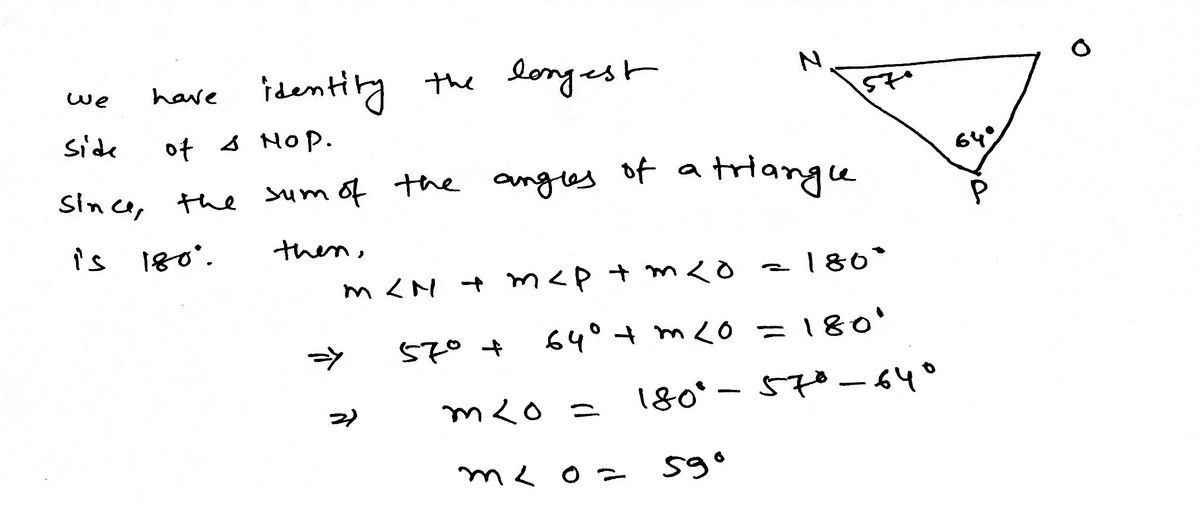 we have identity the longest
side of Δ NOP.
since, the sum of the angles of a triangle
is 180°. then,
m<N + m<P + m<O = 180°
⇒ 57° + 64° + m<O = 180°
⇒ m<O = 180° - 57° - 64°
m<O = 59°
N
O
57°
64°
P